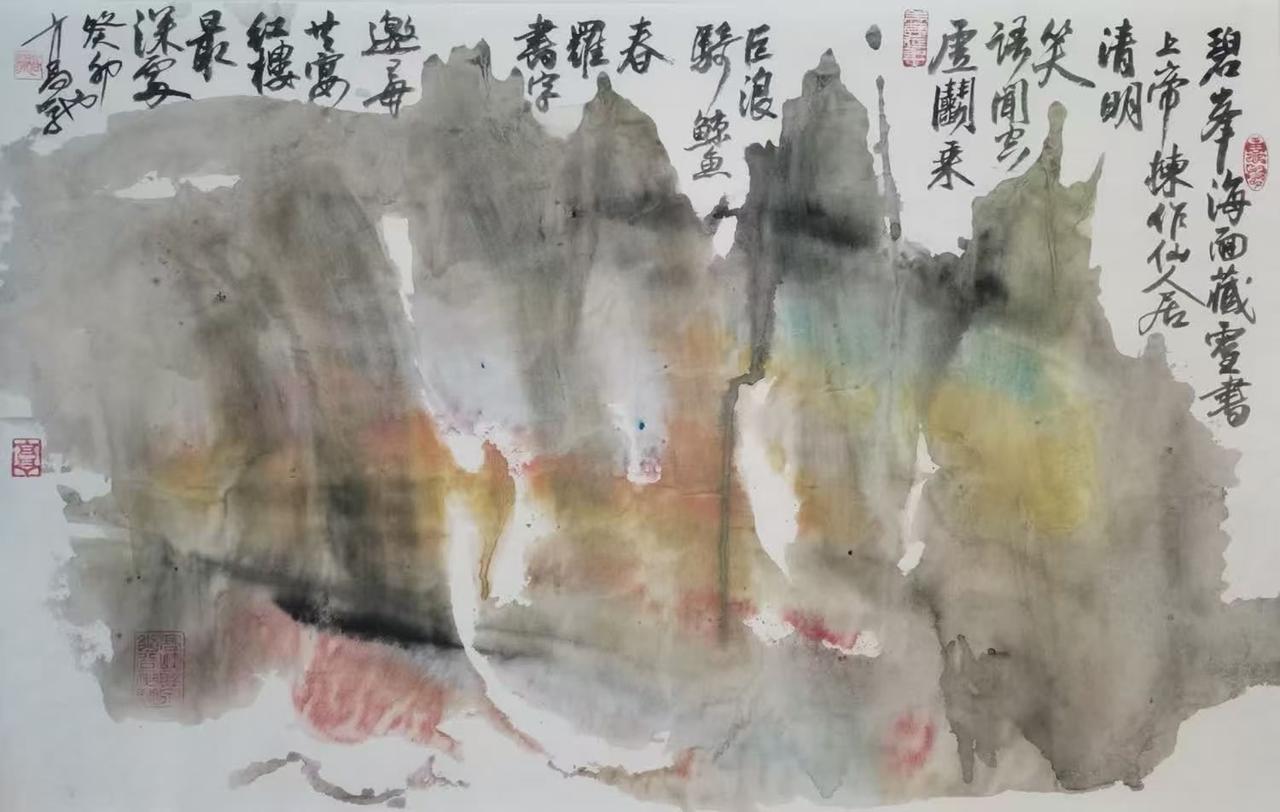 碧峯海面藏靈書
上帝揀作仙人居
清明
笑
語聞空
虛鬭乘
巨浪
騎鯨魚
春
羅
書字
邀王母
共宴
紅樓
最
深處
癸卯